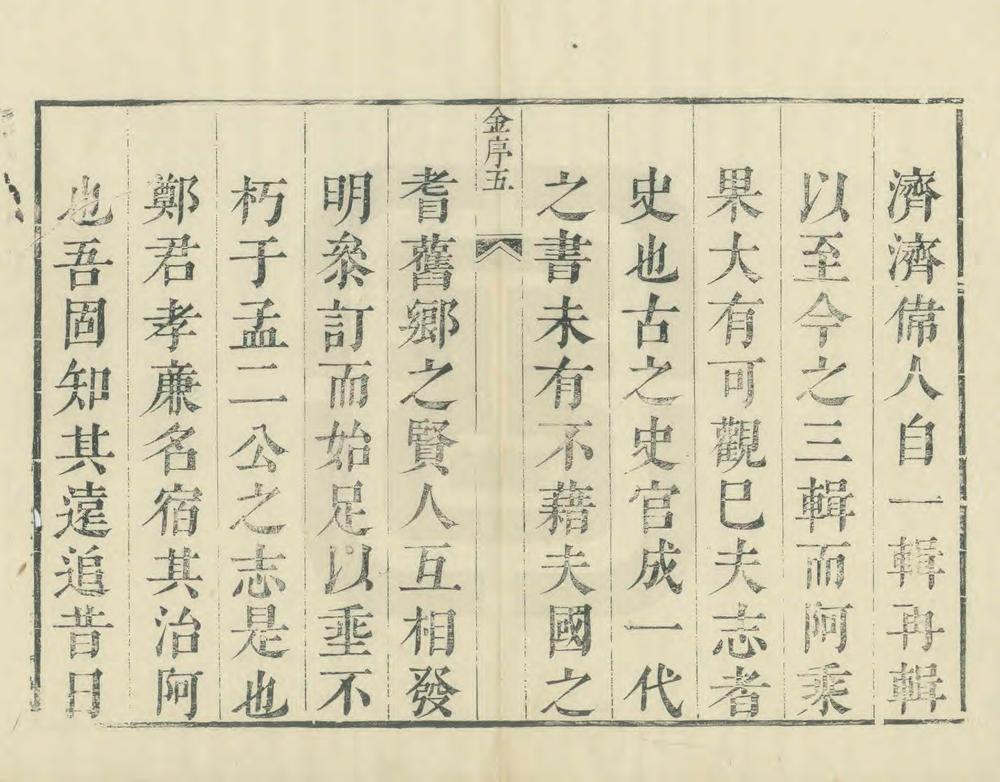 濟濟偉人自一輯再輯
以至今之三輯而阿乘
果大有可觀巳夫志者
史也古之史官成一代
之書未有不藉夫國之
金序五
耆舊鄉之賢人互相發
明叅訂而始足以垂不
朽于孟二公之志是也
鄭君孝廉名宿其治阿
也吾固知其遠追昔日